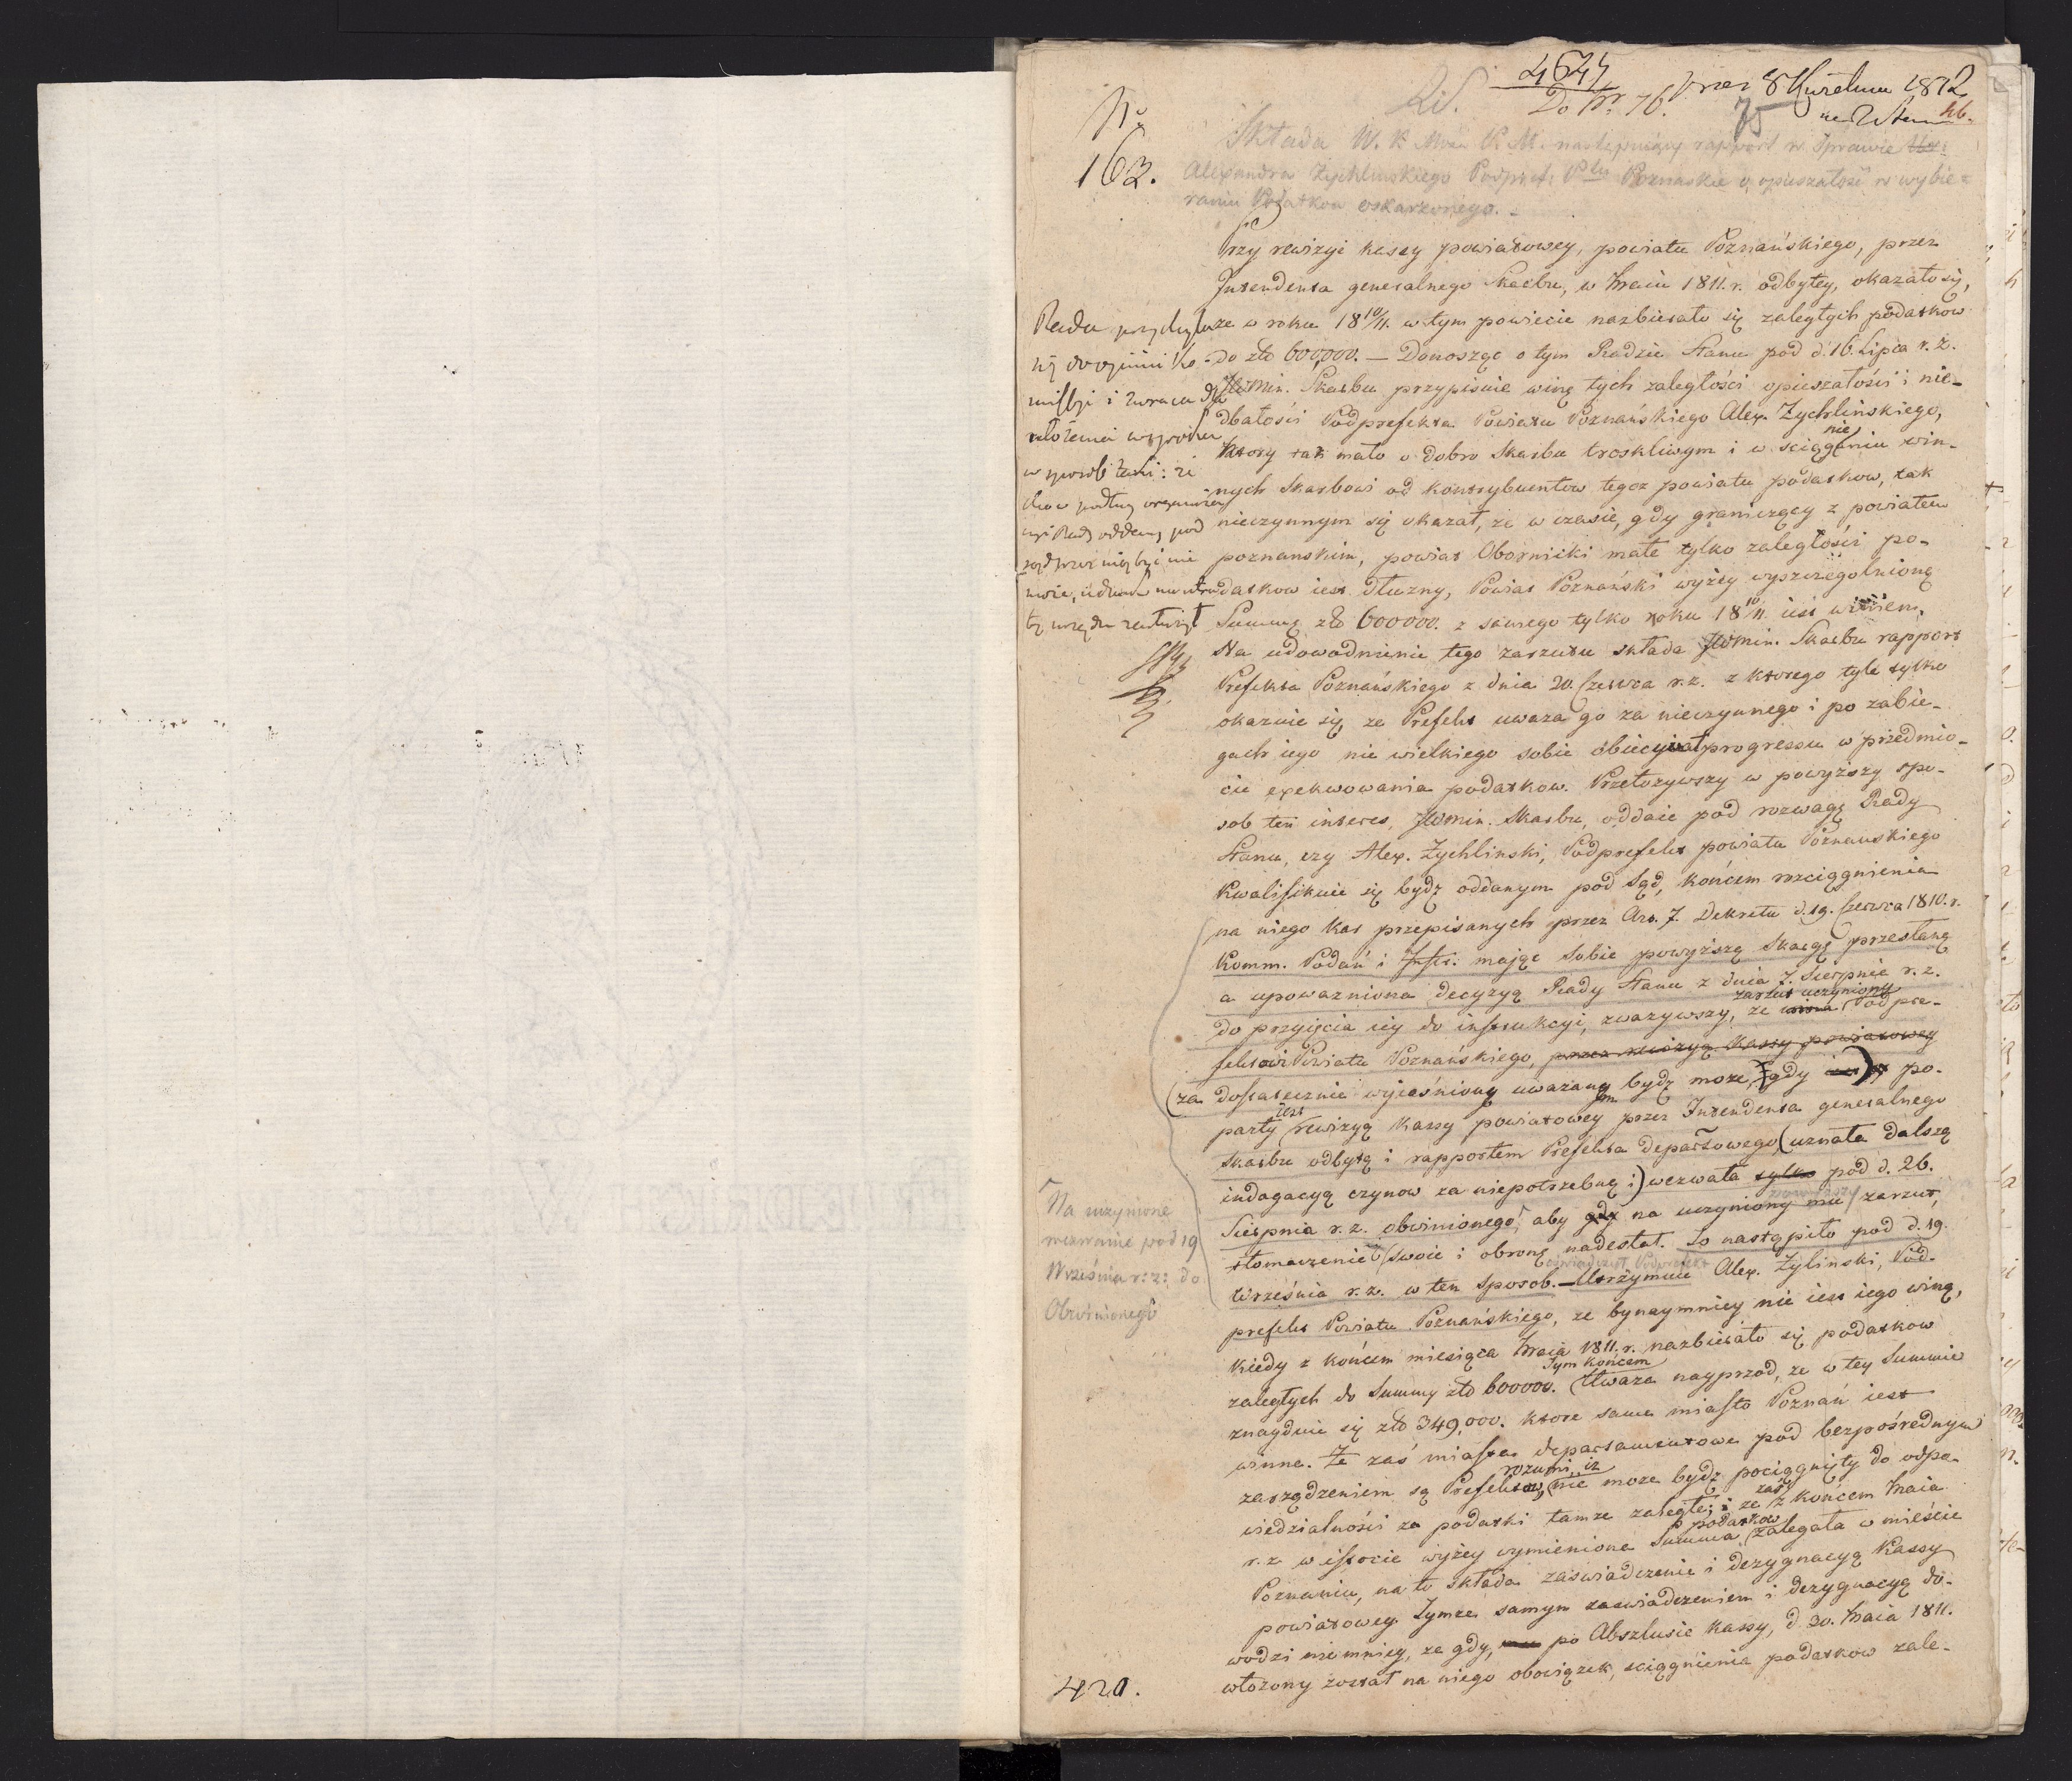 4624
Do Nr. 76.
8 Kwietnia 1812
75
N.
163.
Składa W. K. Mci następuiący rapport w Sprawie
Alexandra Zychlinskiego Podpref: Ptu Poznaskie o opieszałość w wybie-
raniu Podatkow oskarzonego. -
Przy rewizyi kassy powiatowey, powiatu Poznańskiego, przez
Intendenta generalnego Skarbu, w Maiu 1811. r. odbytey, okazało się,
że w roku 18 10/11. w tym powiecie nazbierało się zaległych podatkow
do złł 600,000. — Donosząc o tym Radzie Stanu pod d. 16. Lipca r. z.
JWMin. Skarbu przypisuie winę tych zaległości opieszałości i nie-
dbałości Podprefekta Powiatu Poznańskiego Alex. Zychlinskiego,
ktory tak mało o dobro Skarbu troskliwym i w sciągnieniu win-
nych Skarbowi od kontrybuentow tegoz powiatu podatkow, tak
nieczynnym się okazał, że w czasie, gdy graniczący z powiatem
poznanskim, powiat Obornicki małe tylko zaległości po-
datkow iest dłuzny, Powiat Poznański wyżey wyszczegolnioną
Summę złł 600000. z samego tylko roku 18 10/11. iest winien.
Na udowodnienie tego zarzutu składa JWMin. Skarbu rapport
Prefekta Poznańskiego z dnia 20. Czerwca r. z. z ktorego tyle tylko
okazuie się, ze Prefekt uwaza go za nieczynnego i po zabie-
gach iego nie wielkiego sobie obiecywał progressu w przedmio-
cie exekwowania podatkow. Przełozywszy w powyższy spo-
sob ten interes, JWMin. Skarbu, oddaie pod rozwagę Rady
Stanu, czy Alex. Zychlinski, Podprefekt powiatu Poznanskiego
Kwalifikuie się bydz oddanym pod Sąd, końcem rozciągnienia
na niego kar przepisanych przez Art. 7. Dekretu d. 19. Czerwca 1810. r.
Komm. Podań i Instr. maiąc sobie powyższą skargę przesłaną
a upowazniona decyzyą Rady Stanu z dnia 7. Sierpnia r. z.
do przyięcia iey do instrukcyi, zwazywszy, ze wina zarzut uczyniony Podpre-
fektowi Powiatu Poznańskiego, przez rewizyą kassy powiatowey
(za dostatecznie wyiaśniony uwazanym bydz moze, gdy po-
party iest rewizyą kassy powiatowey przez Intendenta generalnego
Skarbu odbytą i rapportem Prefekta departowego, (uznała dalszą
indagacyą czynow za niepotrzebną i) wezwała tylko pod d. 26.
Sierpnia r. z. obwinionego, aby gdy na uczyniony mu zarzut,
tłomaczenie swoie i obronę nadesłał. Co nastąpiło pod d. 19.
Września r. z. w ten sposob. — Utrzymuie Alex. Zylinski, Pod-
prefekt Powiatu Poznańskiego, ze bynaymniey nie iest iego winą,
kiedy z końcem miesiąca Maia 1811. r. nazbierało się podatkow
zaległych do Summy złł 600000. Tym końcem Uwaza nayprzod, ze w tey Summie
znayduie się złł 349,000. ktore samo miasto Poznań iest
winne. Ze zaś miasta departamentowe pod bezpośrednym
zarządzeniem są Prefektow, rozumi, iz nie moze bydz pociągnięty do odpo-
wiedzialności za podatki tamze zaległe; i ze zaś z końcem Maia
r. z. w istocie wyżey wymieniona Summa podatkow zalegała w mieście
Poznaniu, na to składa zaswiadczenie i dezygnacyą kassy
powiatowey. Tymze samym zaswiadczeniem i dezygnacyą do-
wodzi niemniey, ze gdy, po Abszlusie kassy, d. 30. Maia 1811.
włozony został na niego obowiązek, sciągnienia podatkow zale-
Rada przychyla
się do opinii Ko-
missyi i zwraca
w sposob taki: że
Na uczynione
wezwanie pod 19
Września r: z: do
Obwinionego
420.